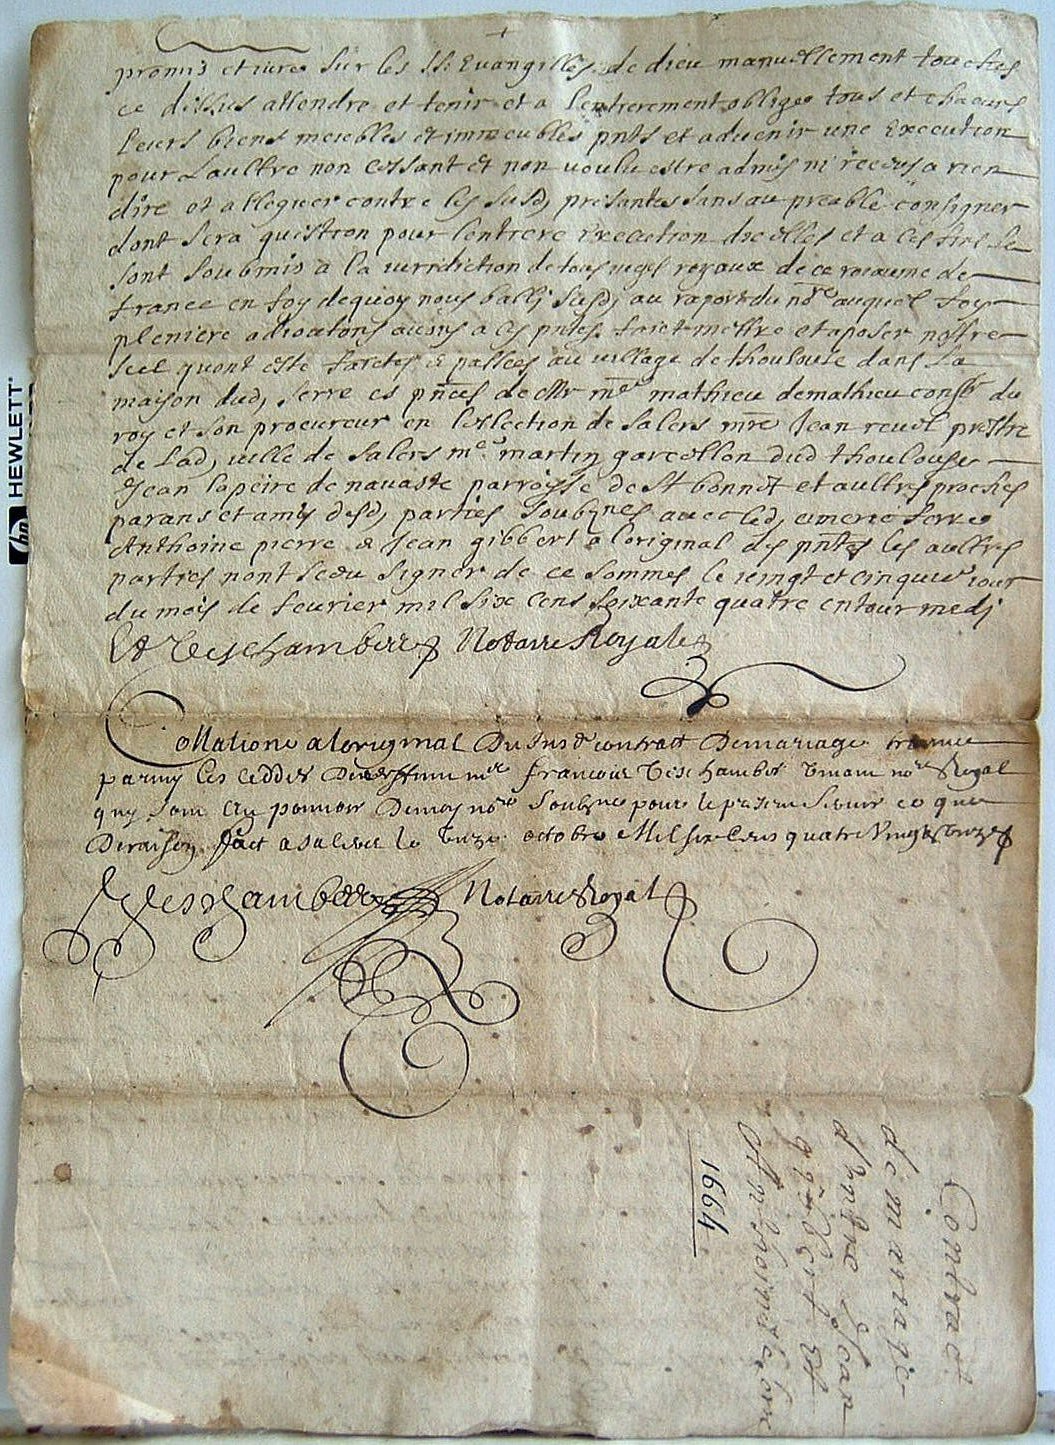 promis et iure sur les Sts Euangilles de dieu manuellement touches
ce dessus attendre et tenir et a lentretement obliges tous et chacuns
leurs biens meubles et immeubles pnts et aduenir une Execution
pour laultre non cessant et non voulu estre admis ni receus a rien
dire et alleguer contre les susd, presantes sans au preable consigner
dont sera question pour lentiere execution dicelles et a ces fins se
sont soubmis a la iurisdiction de tous iuges royaux de ce roiaume de
france en foy dequoy nous balli susd, au raport du nore auquel foy
pleniere adioutons auons a ces pntes faict mettre et aposer nostre
seel quont este faictes & passees au village de thoulouse dans la
maison dud, serre es pnces de Mr me mathieu demathieu conser du
roy et son procureur en lellection de salers mre Jean reuel prestre
de lad, ville de salers me martin garcellon dud thoulouse
Jean lapeire de nauaste parroisse de St bonnet et aultres proches
parans et amis desd, parties soubznes auec led, emerie serre
Anthoine pierre & Jean gibbert a loriginal des pntes les aultres
parties nont sceu signer de ce sommes le vingt et cinquie iour
du mois de feurier mil six cens soixante quatre entour medj
Et Deschambers Notaire Royale
Collationé a loriginal Du susd contract Demariage trouue
parmy les ceddes De deffunt me francois Deschambes viuant nore Royal
quy sont en pouuoir De moy nore soubzne pour le presen seruir ce que
De raison fait a salers le onze octobre Mil six Cens quatre Vingts onze
Deschambers Notaire Royal
Contract
de mariage
d'entre Jean
gibbert et
Anthoinete serre
1664
HEWLETT
hp